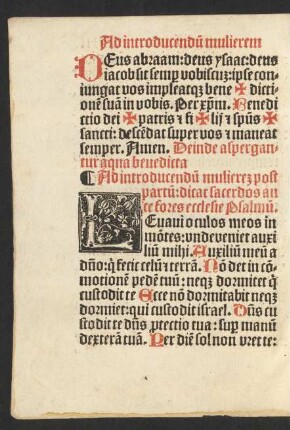 Ad introducendū mulierem
DEus abraam: deus ysaac: deus
iacob sit semp vobiscū: ipse con
iungat vos impleatqȝ bene ✠ dicti-
onē suā in vobis. Per xp̄m. Benedi
ctio dei ✠ patris t fi ✠ lij t sp̄us ✠
sancti: descēdat super vos t maneat
semper. Amen. Deinde aspergan-
tur aqua benedicta
¶ Ad introducendū mulierez post
partū: dicat sacerdos an
te fores ecclesie Psalmū.
LEuaui oculos meos in
mōtes: vnde veniet auxi
liū mihi. Auxiliū meū a
dn̄o: q̄ fecit celū t terrā. Nō det in cō-
motionē pedē tuū: neqȝ dormitet q̄
custodit te Ecce nō dormitabit neqȝ
dormiet: qui custodit israel. Dn̄s cu
stodit te dn̄s ꝓtectio tua: sup manū
dexterā tuā. Per diē sol non vret te: